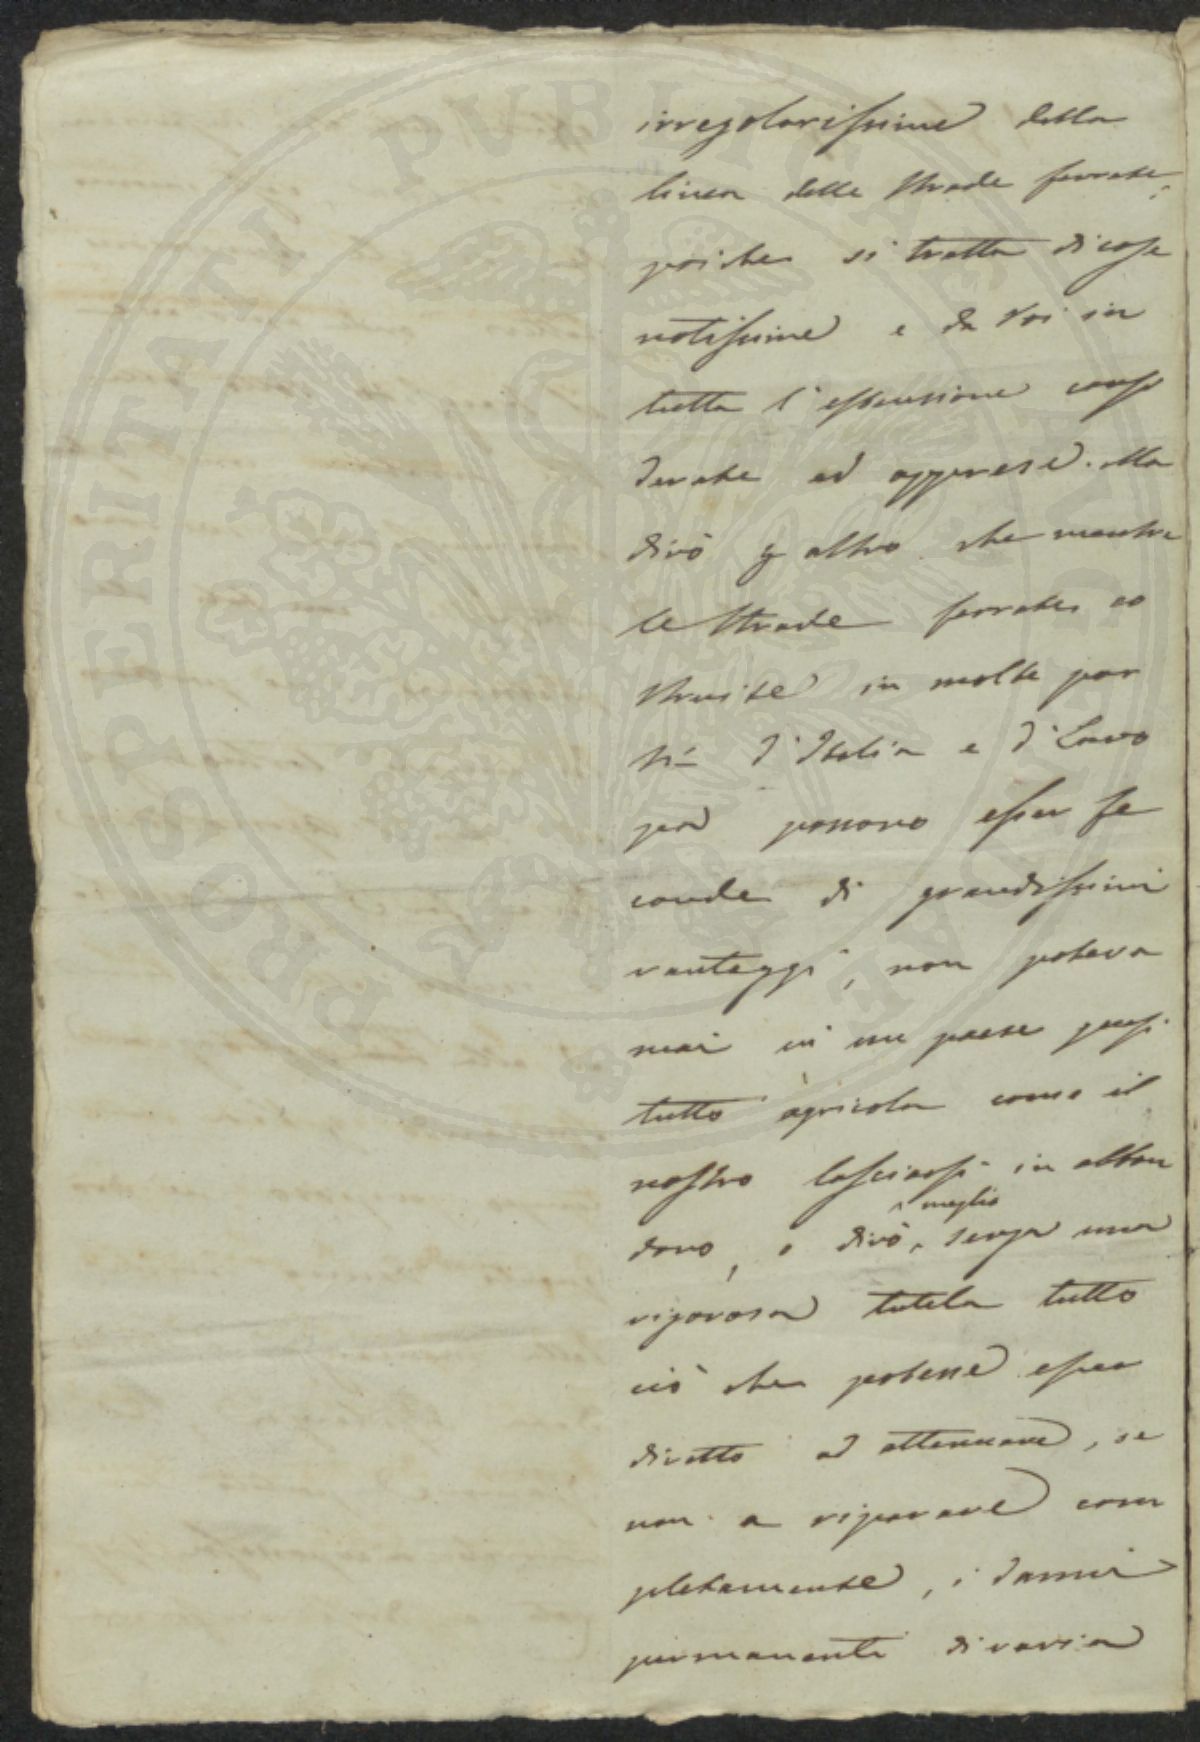 PROSPERITATI PUBLICAE AUGENDAE
irregolarissime della
linea delle strade ferrate,
poiche si tratta di cose
notissime e da Voi in
tutta l'estensione consi
derate ed apprese. Ma
dirò altro che mentre
le strade ferrate co
struite in molte par
ti d'Italia e d'Euro
pa possono esser fe
conde di grandissimi
vantaggi, non poteva
mai in un paese quasi
tutto agricola come il
nostro lasciarsi in abban
dono, o dirò meglio, senza una
rigorosa tutela tutto
ciò che potesse esser
diretto ad attenuare, se
non a riparare com
pletamente, i danni
permanenti di varia